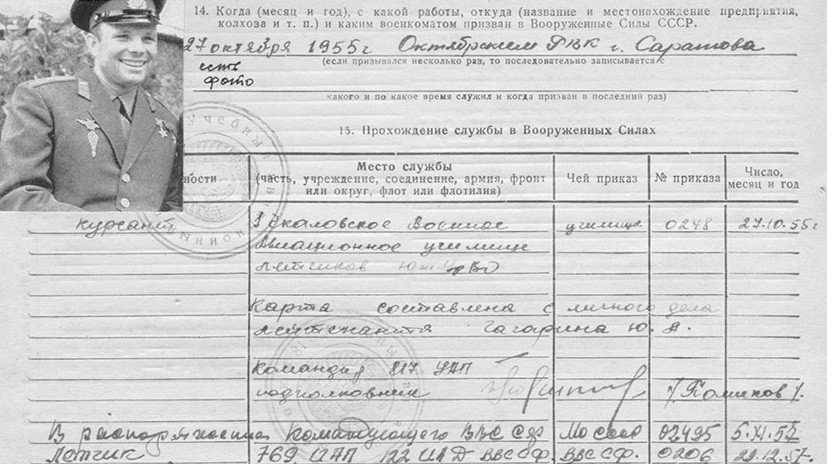 14. Когда (месяц и год), с какой работы, откуда (название и местонахождение предприятия,
колхоза и т. п.) и каким военкоматом призван в Вооруженные Силы СССР.
27 октября 1955г Октябрьским РВК г. Саратова
(если призывался несколько раз, то последовательно записывается с
есть
фото
какого и по какое время служил и когда призван в последний раз)
15. Прохождение службы в Вооруженных Силах
ности
Место службы
(часть, учреждение, соединение, армия, фронт
или округ, флот или флотилия)
Чей приказ
№ приказа
Число,
месяц и год
курсант
1 Чкаловское Военное
Авиационное училище
летчиков
училищ
0248
27.10.55г
Карта составлена с личного дела
лейтенанта Гагарина Ю. А.
Командир 817 УАП
подполковник
/Поликов/
В распоряжение командующего ВВС СФ
МО СССР
02495
5.XI.57
Летчик
769 ИАП 122 ИАД ВВС СФ.
ВВС СФ.
0206
29.12.57.
Учебный